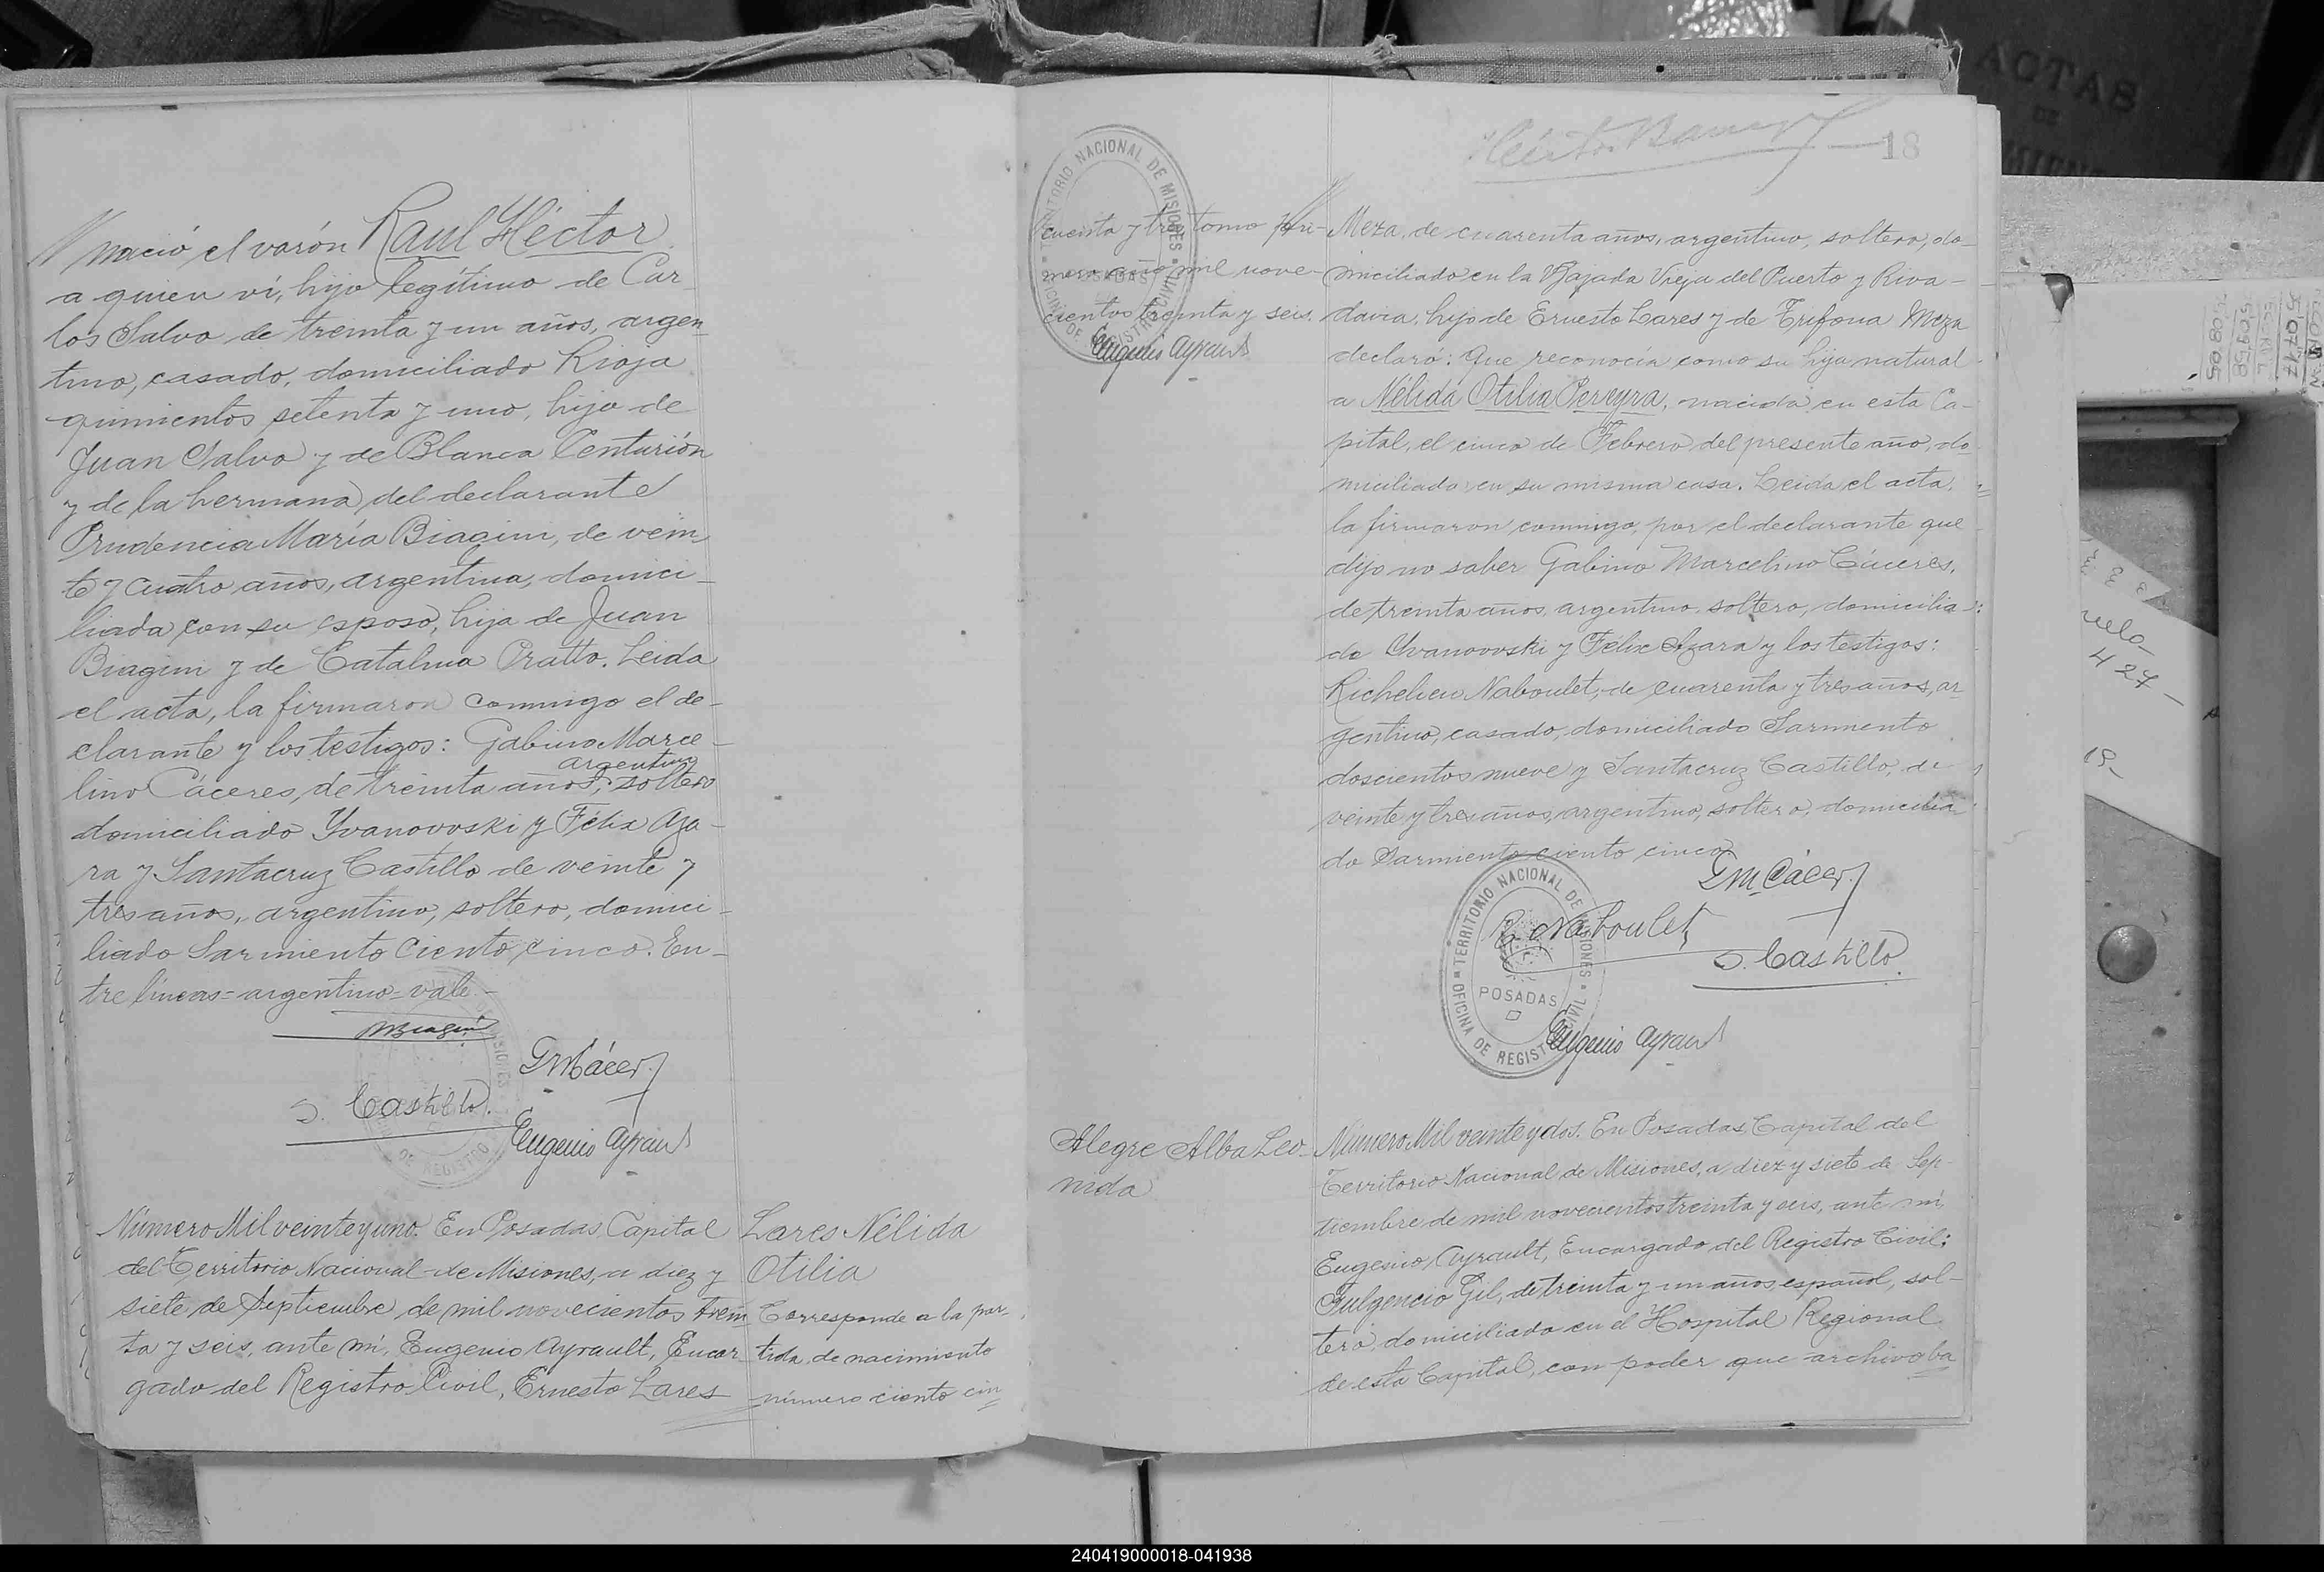 nació el varón Raul Héctor
a quien ví, hijo legítimo de Car
los Salvo de treinta y un años, argen
tino, casado, domiciliado Rioja
quinientos setenta y uno, hijo de
Juan Salvo y de Blanca Centurión
y de la hermana del declarante
Prudencia María Biagini, de vein
te y cuatro años, argentina, domici-
liada con su esposo, hija de Juan
Biagini y de Catalina Pratto. Leida
el acta, la firmaron conmigo el de-
clarante y los testigos: Gabino Marce-
argentino
lino Cáceres, de treinta años, soltero
domiciliado Yvanovski y Félix Aza-
ra y Santacruz Castillo de veinte y
tres años, argentino, soltero, domici-
liado Sarmiento Ciento cinco. En-
tre líneas=argentino=vale-
MBiagini
GMCácer.
S. Castillo.
Eugenio Ayrault
DE REGISTRO
Número Mil veinte y uno. En Posadas, Capital
del Territorio Nacional de Misiones, a diez y
siete de Septiembre de mil novecientos trein
ta y seis, ante mí, Eugenio Ayrault, Encar
gado del Registro Civil, Ernesto Lares
Lares Nélida
Otilia
Corresponde a la par-
tida de nacimiento
número ciento cin
18
TERRITORIO NACIONAL DE MISIONES
POSADAS
OFICINA DE REGISTRO CIVIL
cuenta y tres tomo pri-
mero año mil nove-
cientos treinta y seis.
Eugenio Ayrault
Meza, de cuarenta años, argentino, soltero, do-
miciliado en la Bajada Vieja del Puerto y Riva-
davia, hijo de Ernesto Lares y de Trifona Meza
declaró: Que reconocía como su hija natural
a Nélida Otilia Pereyra, nacida en esta Ca-
pital, el cinco de Febrero del presente año, do
miciliada en su misma casa. Leida el acta,
la firmaron conmigo, por el declarante que
dijo no saber Gabino Marcelino Cáceres,
de treinta años, argentino, soltero, domicilia-
do Yvanovski y Félix Azara y los testigos:
Richelieu Naboulet, de cuarenta y tres años, ar
gentino, casado, domiciliado Sarmiento
doscientos nueve y Santacruz Castillo, de
veinte y tres años, argentino, soltero, domicilia
do Sarmiento ciento cinco
GMCácer.
R Naboulet
S. Castillo
TERRITORIO NACIONAL DE MISIONES
POSADAS
OFICINA DE REGISTRO CIVIL
Eugenio Ayrault
Alegre Alba Leo-
nida
Número Mil veinte y dos. En Posadas, Capital del
Territorio Nacional de Misiones, a diez y siete de Sep-
tiembre de mil novecientos treinta y seis, ante mí,
Eugenio Ayrault, Encargado del Registro Civil;
Fulgencio Gil, de treinta y un años, español, sol-
tero, domiciliado en el Hospital Regional
de esta Capital, con poder que archivo ba
ACTAS
DE
427
240419000018-041938